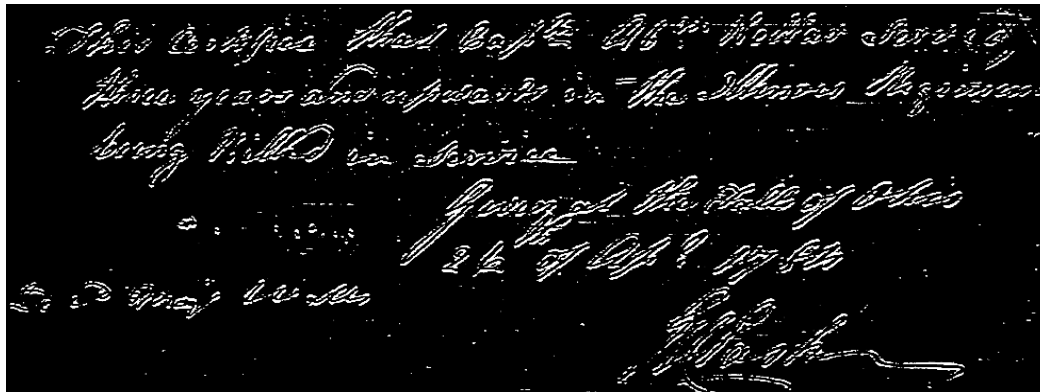 This Certifies that Capt. Abm Kellar Served
three years and upwards in the Illinois Regiment
being Killed in Service
Given at the Falls of Ohio
2 of Apl. 1784
G R Clark